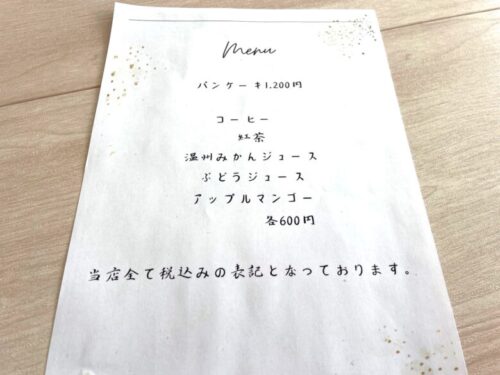 Menu
パンケーキ1,200円
コーヒー
紅茶
温州みかんジュース
ぶどうジュース
アップルマンゴー
各600円
当店全て税込みの表記となっております。